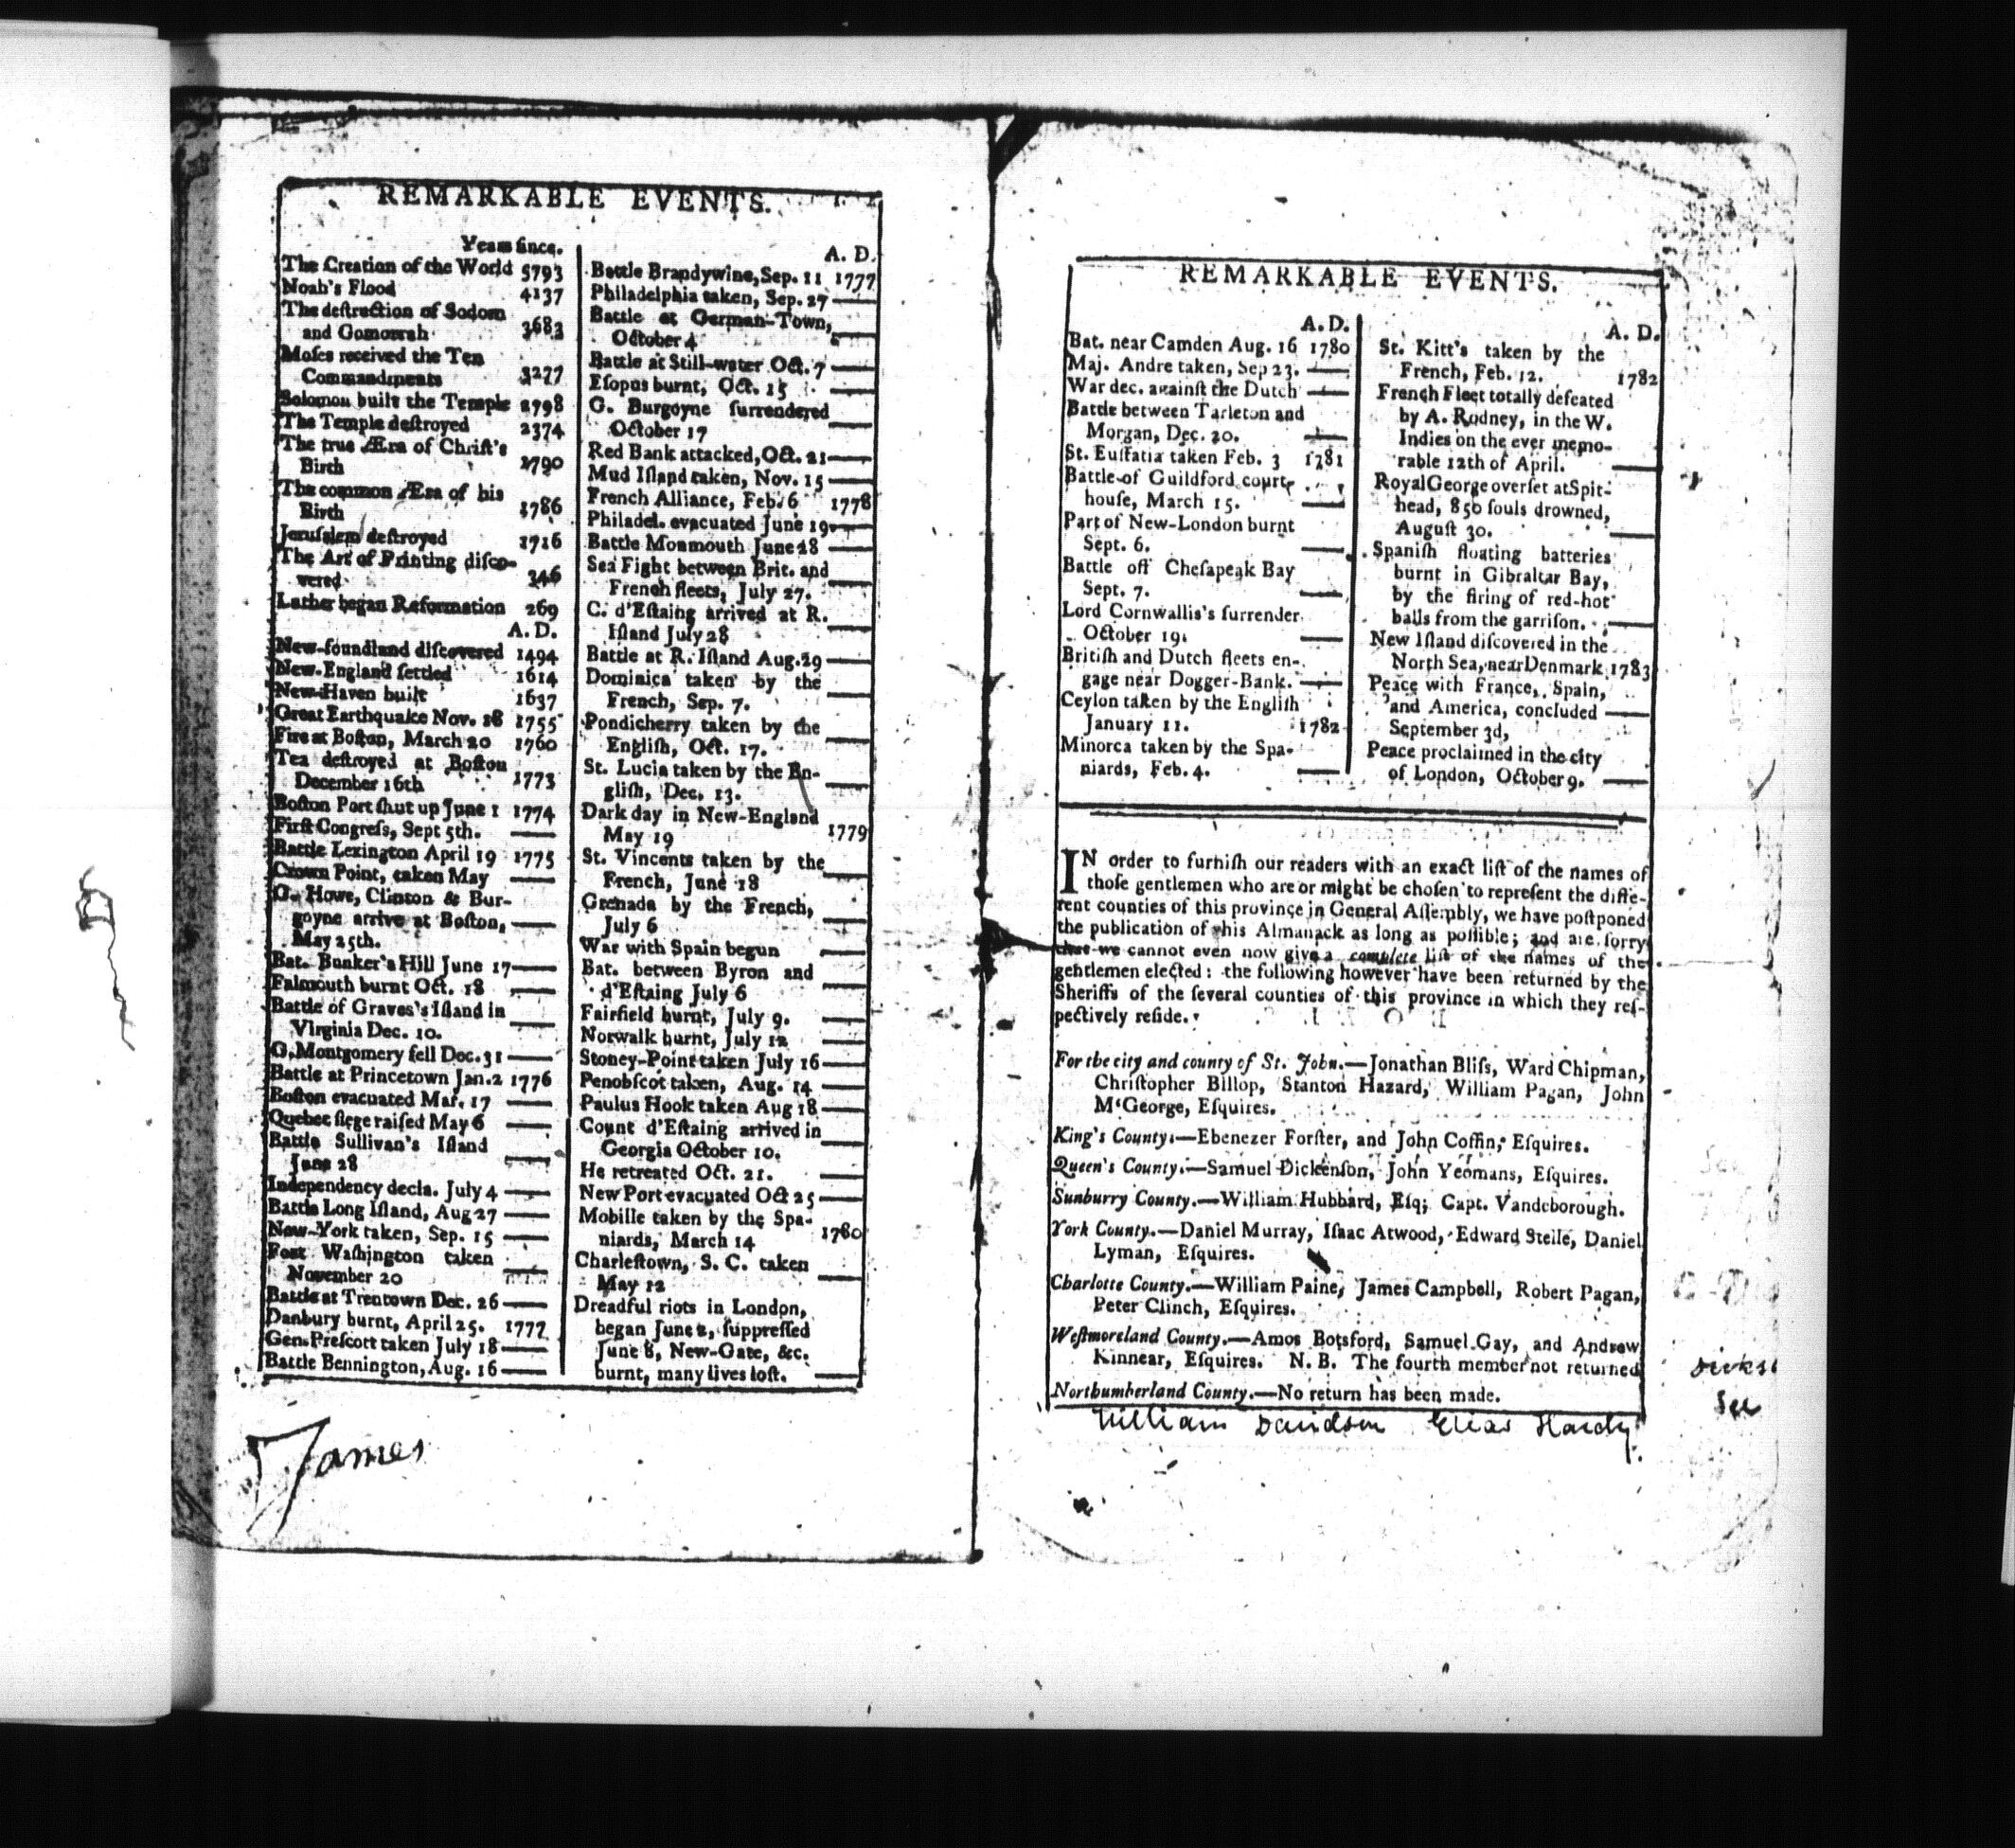 REMARKABLE EVENTS.
Years since.
The Creation of the World 5793
Noah's Flood 4137
The destruction of Sodom
and Gomorrah 3683
Moses received the Ten
Commandments 3277
Solomon built the Temple 2798
The Temple destroyed 2374
The true Æra of Christ's
Birth 1790
The common Æra of his
Birth 1786
Jerusalem destroyed 1716
The Art of Printing disco-
vered 346
Luther began Reformation 269
A. D.
New-foundland discovered 1494
New-England settled 1614
New-Haven built 1637
Great Earthquake Nov. 18 1755
Fire at Boston, March 20 1760
Tea destroyed at Boston
December 16th 1773
Boston Port shut up June 1 1774
First Congress, Sept 5th. ——
Battle Lexington April 19 1775
Crown Point, taken May ——
G. Howe, Clinton & Bur-
goyne arrive at Boston, ——
May 25th.
Bat. Bunker's Hill June 17 ——
Falmouth burnt Oct. 18 ——
Battle of Graves's Island in
Virginia Dec. 10. ——
G. Montgomery fell Dec. 31 ——
Battle at Princetown Jan. 2 1776
Boston evacuated Mar. 17 ——
Quebec siege raised May 6 ——
Battle Sullivan's Island
June 28 ——
Independency decla. July 4 ——
Battle Long Island, Aug 27 ——
New-York taken, Sep. 15 ——
Fort Washington taken
November 20 ——
Battle at Trentown Dec. 26 ——
Danbury burnt, April 25. 1777
Gen. Prescott taken July 18 ——
Battle Bennington, Aug. 16 ——
A. D.
Battle Brandywine, Sep. 11 1777
Philadelphia taken, Sep. 27 ——
Battle at German-Town,
October 4 ——
Battle at Still-water Oct. 7 ——
Esopus burnt, Oct. 15 ——
G. Burgoyne surrendered
October 17 ——
Red Bank attacked, Oct. 21 ——
Mud Island taken, Nov. 15 ——
French Alliance, Feb. 6 1778
Philadel. evacuated June 19 ——
Battle Monmouth June 28 ——
Sea Fight between Brit. and
French fleets, July 27. ——
C. d'Estaing arrived at R.
Island July 28 ——
Battle at R. Island Aug. 29 ——
Dominica taken by the
French, Sep. 7. ——
Pondicherry taken by the
English, Oct. 17. ——
St. Lucia taken by the En-
glish, Dec. 13. ——
Dark day in New-England
May 19 1779
St. Vincents taken by the
French, June 18 ——
Grenada by the French,
July 6 ——
War with Spain begun ——
Bat. between Byron and
d'Estaing July 6 ——
Fairfield burnt, July 9. ——
Norwalk burnt, July 12 ——
Stoney-Point taken July 16 ——
Penobscot taken, Aug. 14 ——
Paulus Hook taken Aug 18 ——
Count d'Estaing arrived in
Georgia October 10. ——
He retreated Oct. 21. ——
New Port evacuated Oct 25 ——
Mobille taken by the Spa-
niards, March 14 1780
Charlestown, S. C. taken
May 12 ——
Dreadful riots in London,
began June 2, suppressed
June 8, New-Gate, &c.
burnt, many lives lost. ——
James
REMARKABLE EVENTS.
A. D.
Bat. near Camden Aug. 16 1780
Maj. Andre taken, Sep 23. ——
War dec. against the Dutch ——
Battle between Tarleton and
Morgan, Dec. 20. ——
St. Eustatia taken Feb. 3 1781
Battle of Guildford court-
house, March 15. ——
Part of New-London burnt
Sept. 6. ——
Battle off Chesapeak Bay
Sept. 7. ——
Lord Cornwallis's surrender
October 19. ——
British and Dutch fleets en-
gage near Dogger-Bank. ——
Ceylon taken by the English
January 11. 1782
Minorca taken by the Spa-
niards, Feb. 4. ——
A. D.
St. Kitt's taken by the
French, Feb. 12. 1782
French Fleet totally defeated
by A. Rodney, in the W.
Indies on the ever memo-
rable 12th of April. ——
Royal George overset at Spit-
head, 850 souls drowned,
August 30. ——
Spanish floating batteries
burnt in Gibraltar Bay,
by the firing of red-hot
balls from the garrison. ——
New Island discovered in the
North Sea, near Denmark 1783
Peace with France, Spain,
and America, concluded ——
September 3d,
Peace proclaimed in the city
of London, October 9. ——
IN order to furnish our readers with an exact list of the names of
those gentlemen who are or might be chosen to represent the diffe-
rent counties of this province in General Assembly, we have postponed
the publication of this Almanack as long as possible; and are sorry
that we cannot even now give a complete list of the names of the
gentlemen elected: the following however have been returned by the
Sheriffs of the several counties of this province in which they res-
pectively reside.
For the city and county of St. John.—Jonathan Bliss, Ward Chipman,
Christopher Billop, Stanton Hazard, William Pagan, John
M'George, Esquires.
King's County.—Ebenezer Forster, and John Coffin, Esquires.
Queen's County.—Samuel Dickenson, John Yeomans, Esquires.
Sunburry County.—William Hubbard, Esq; Capt. Vandeborough.
York County.—Daniel Murray, Isaac Atwood, Edward Stelle, Daniel
Lyman, Esquires.
Charlotte County.—William Paine, James Campbell, Robert Pagan,
Peter Clinch, Esquires.
Westmoreland County.—Amos Botsford, Samuel Gay, and Andrew
Kinnear, Esquires. N. B. The fourth member not returned
Northumberland County.—No return has been made.
William Davidson Elias Hardy